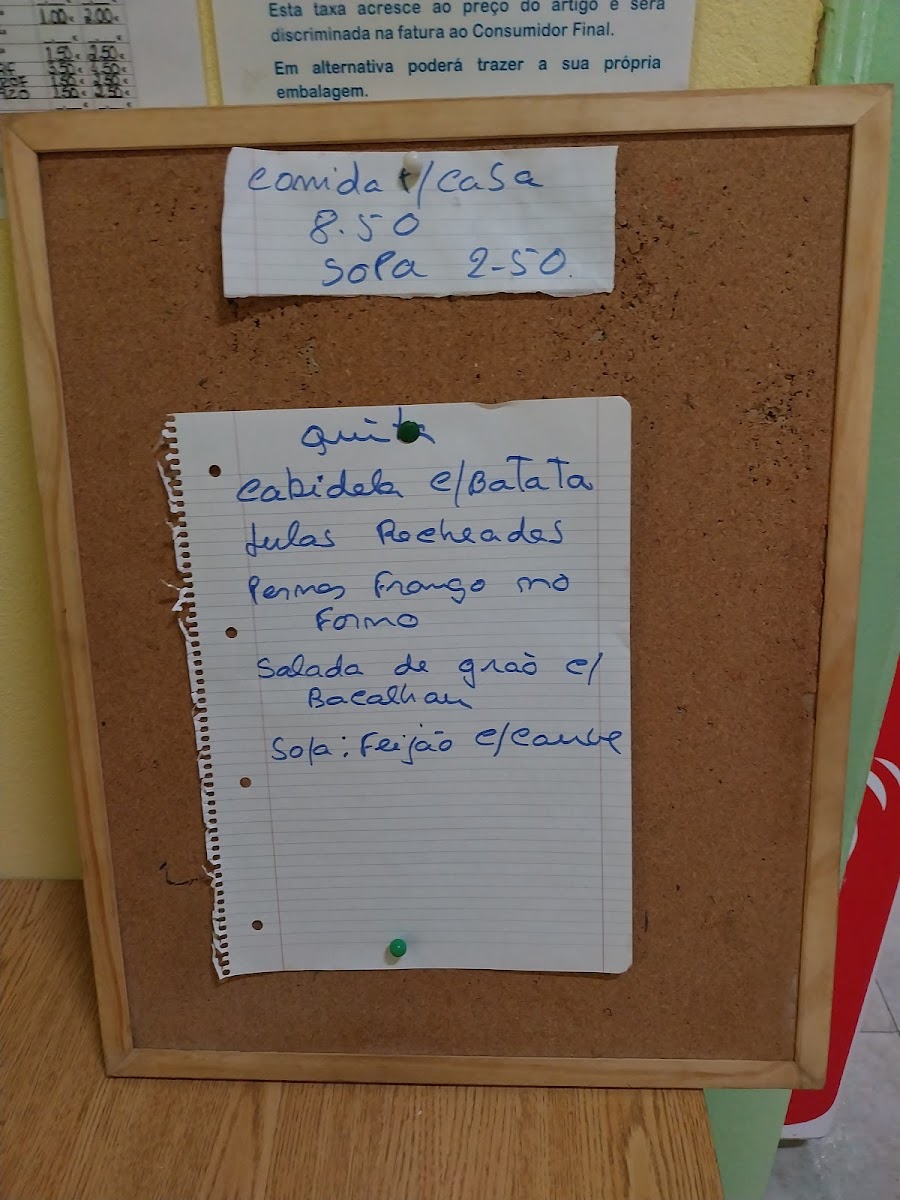 1.00€ 2.00€
1.50€ 2.50€
1.50€ 2.50€
Esta taxa acresce ao preço do artigo e será
discriminada na fatura ao Consumidor Final.
Em alternativa poderá trazer a sua própria
embalagem.
comida /casa
8.50
Sopa 2-50.
Quinta
Cabidela c/Batata
Lulas Recheadas
Pernas Frango no
Forno
Salada de grão c/
Bacalhau
Sopa: Feijão c/couve